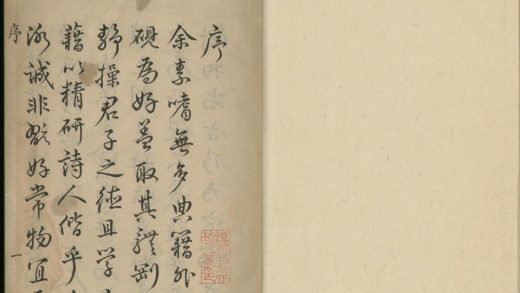 序
余素嗜無多典籍外
硯為好蓋取其體剛
靜操君子之德且學
藉以精研詩人偕乎
泐誠非玩好常物宜
序
一